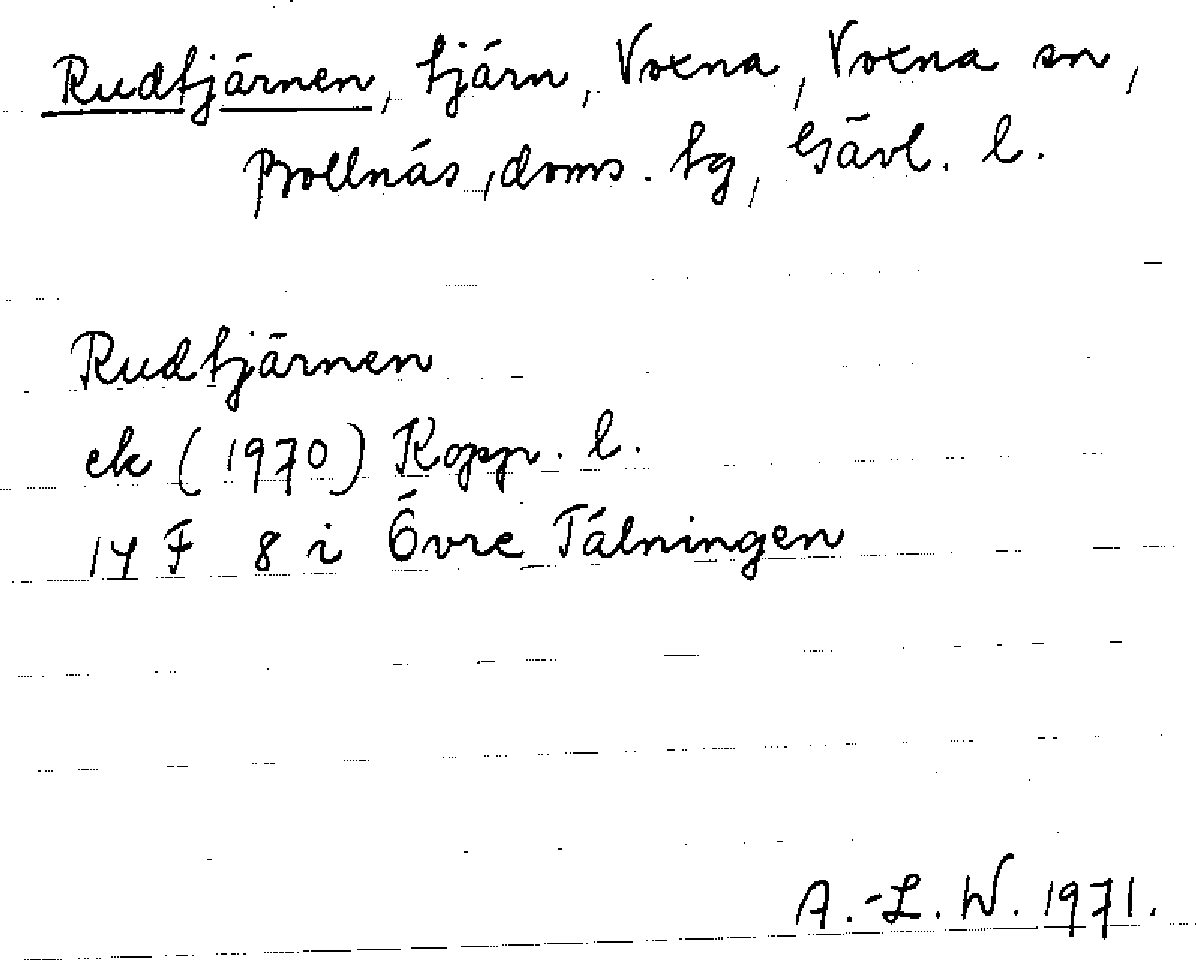 Rudtjärnen, tjärn, Voxna, Voxna sn,
Bollnäs, doms. tg, Gävl. l.
Rudtjärnen
ek (1970) Kopp. l.
14 F 8 i Övre Tälningen
A.-L. W. 1971.